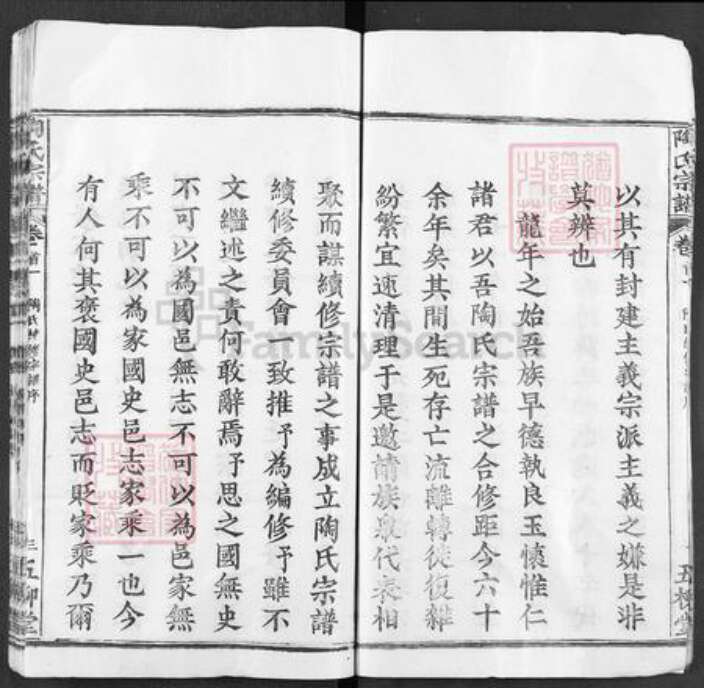 以其有封建主義宗派主義之嫌是非
莫辨也
龍年之始吾族早德執良玉懷惟仁
諸君以吾陶氏宗譜之合修距今六十
余年矣其間生死存亡流離轉徙復雜
紛繁宜速清理于是邀請族眾代表相
聚而謀續修宗譜之事成立陶氏宗譜
續修委員會一致推予為編修予雖不
文繼述之責何敢辭焉予思之國無史
不可以為國邑無志不可以為邑家無
乘不可以為家國史邑志家乘一也今
有人何其褒國史邑志而貶家乘乃爾
陶氏宗譜
卷首一
三
五柳堂
陶氏宗譜
卷首一
五柳堂
FamilySearch